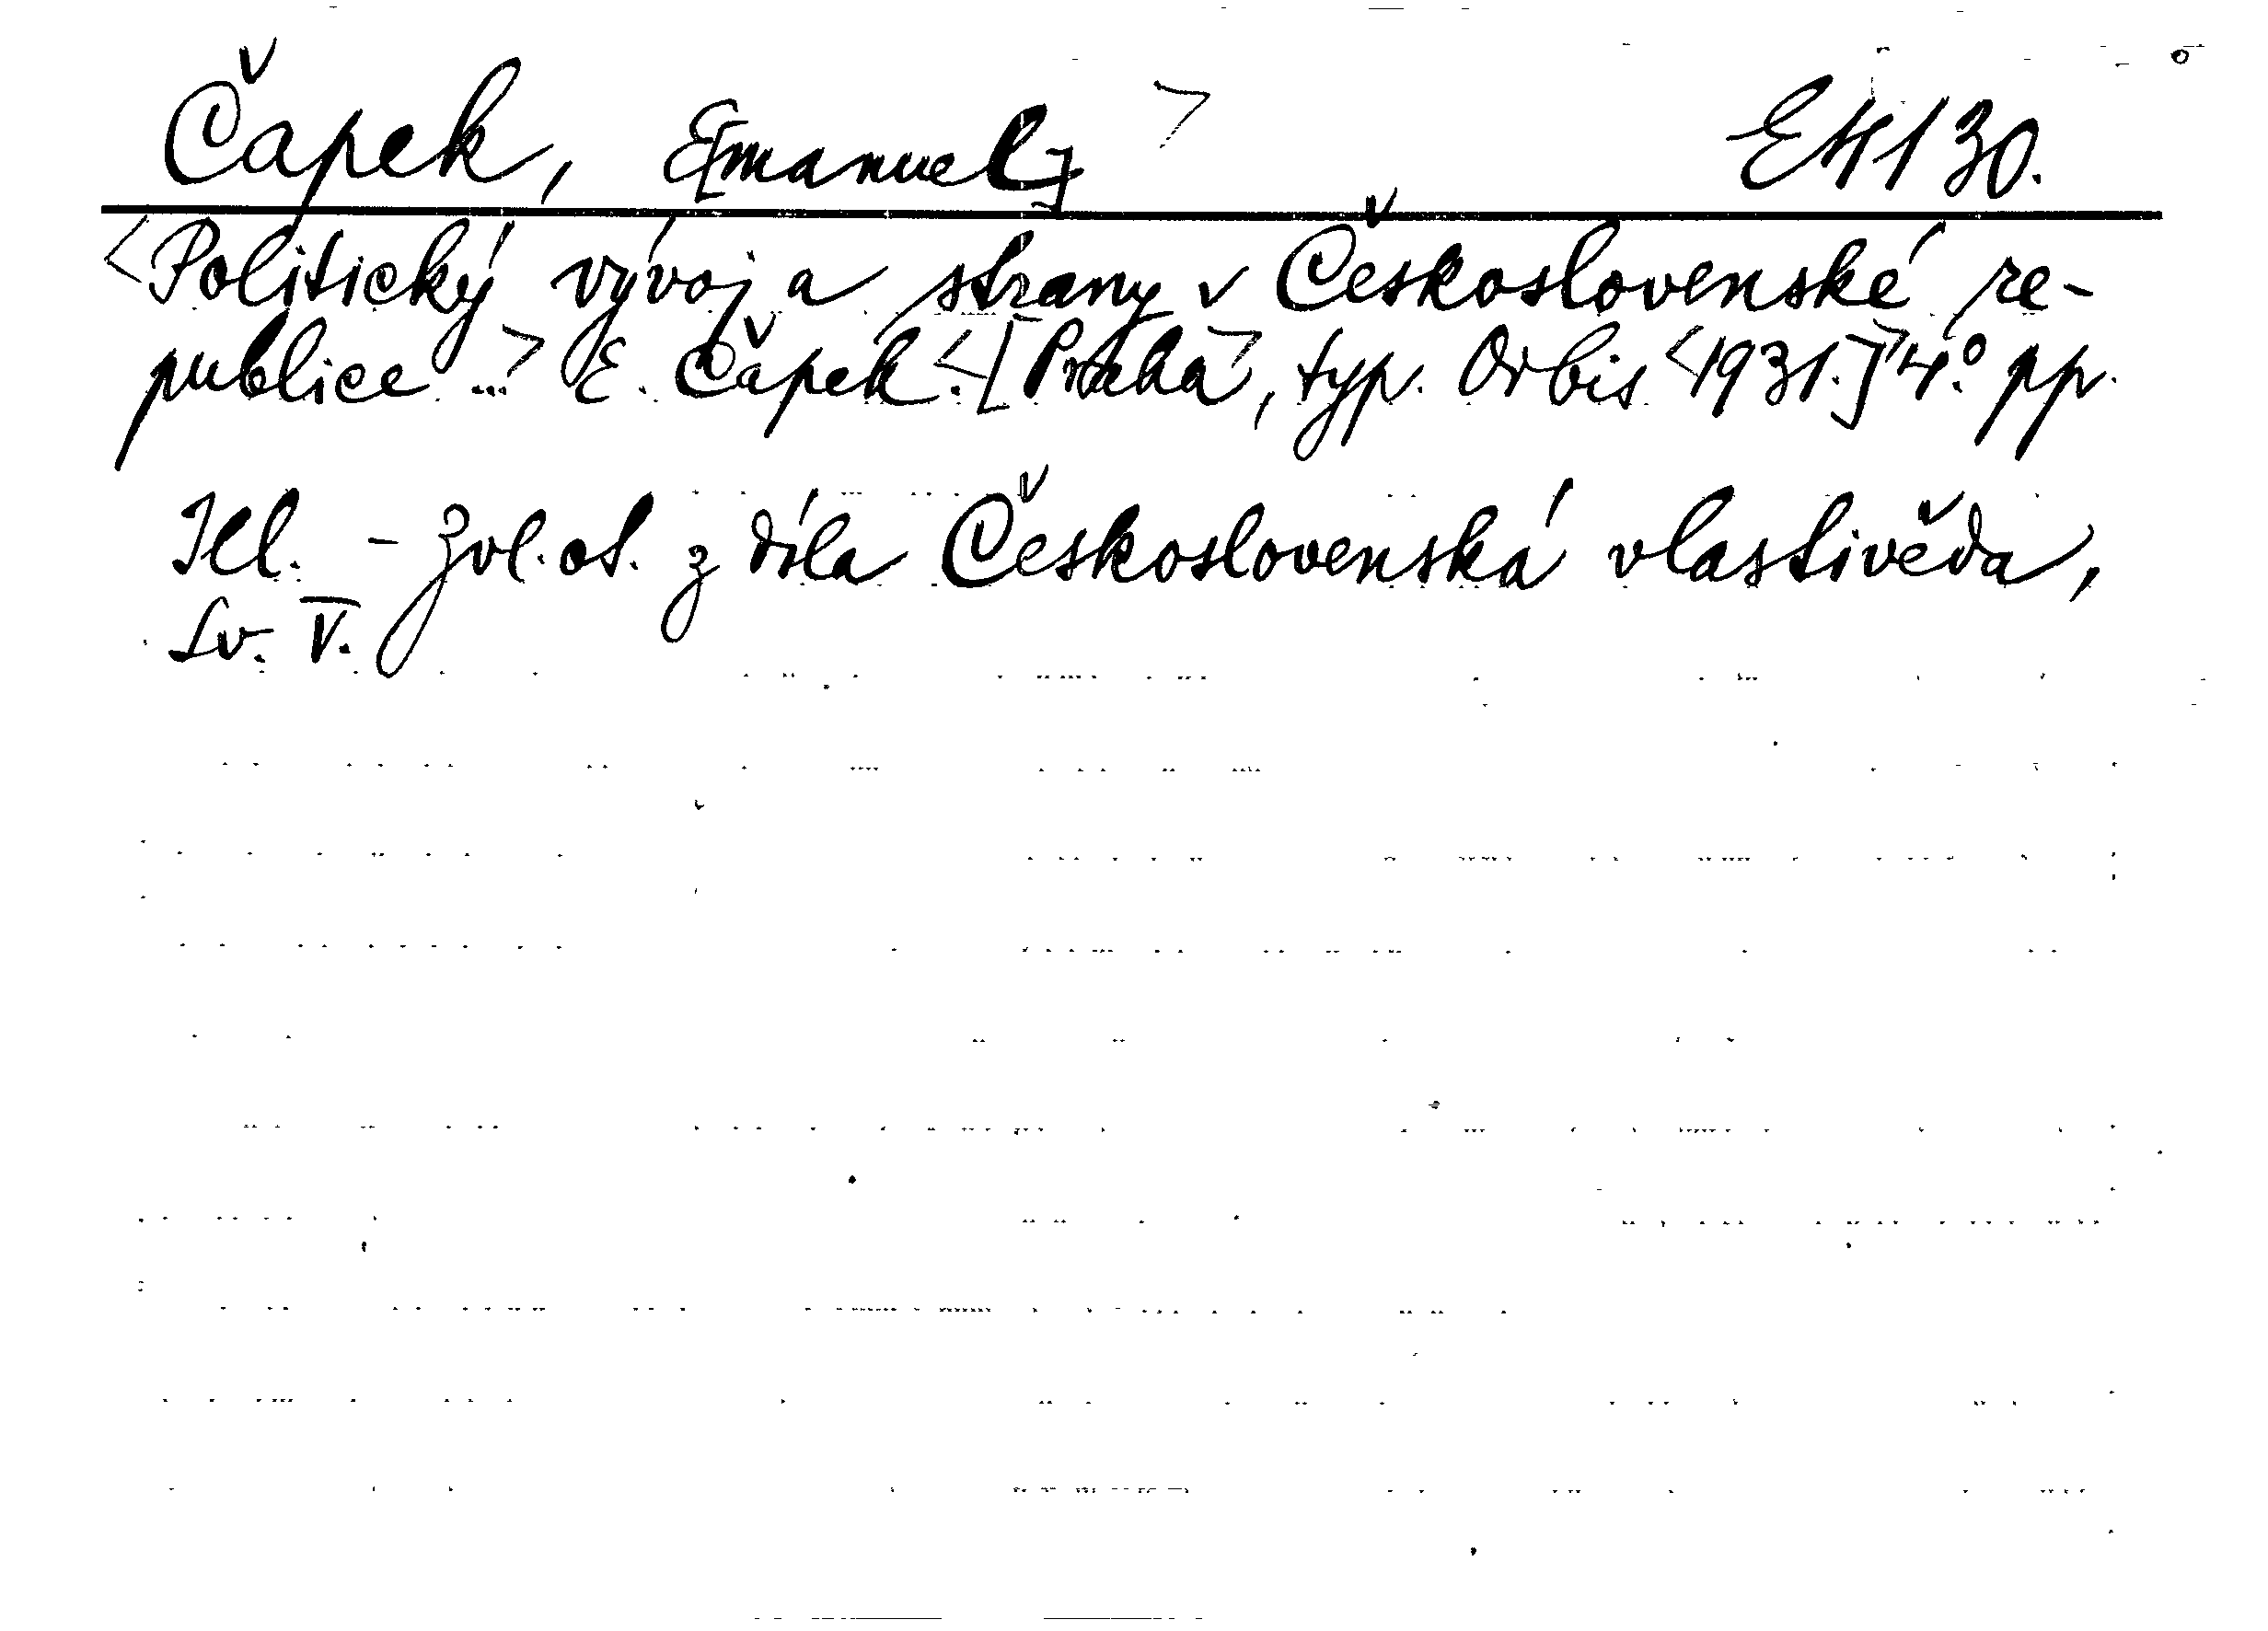 Čapek, E[manuel] > EH 130.
<Politický vývoj a strany v Československé re-
publice ...> E. Čapek. <[Praha>, typ. Orbis <1931.]> 4.° pp.
Ill. - Zvl. ot. z díla Československá vlastivěda,
sv. V.